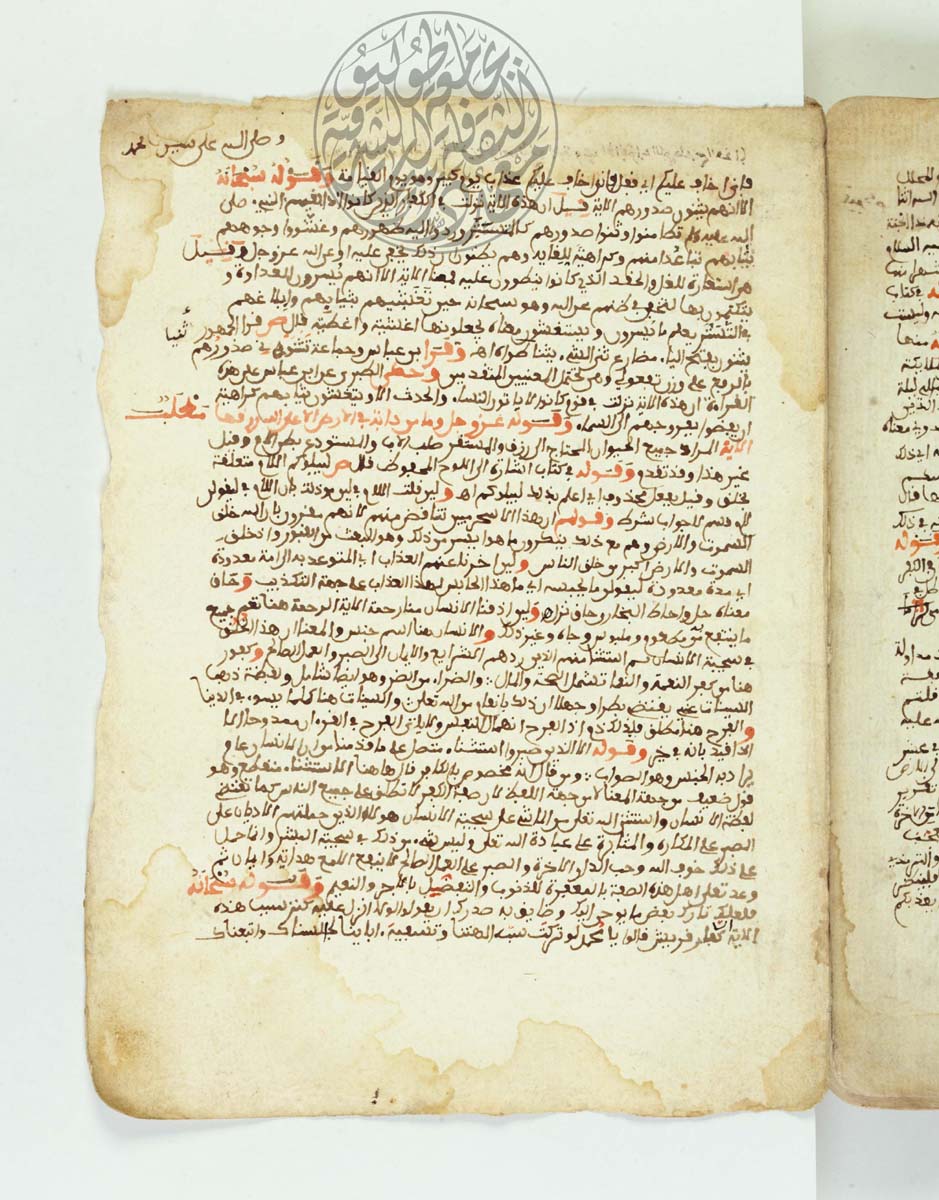 وصلى الله على سيدنا محمد
فإنى أخاف عليكم أي فقل إنى أخاف عليكم عذاب يوم كبير وهو يوم القيامة وقوله سبحانه
ألا انهم يثنون صدورهم الاية قيل ان هذه الاية نزلت في الكفار الذين كانوا اذا لقيهم النبي صلى
الله عليه وسلم تطامنوا وثنوا صدورهم كالمتستر وردوا اليه ظهورهم وغشوا وجوههم
بثيابهم تباعدا منهم وكراهية للقايه وهم يظنون ان ذلك يخفى عليه او عن الله عز وجل وقيل
هي استعارة للغل والحقد الذي كانوا ينطوون عليه فمعنى الاية الا انهم يسرون العداوة و
يتكتمون بها لتخفى في ظنهم عن الله وهو سبحانه حين تغشيهم بثيابهم وابلاغهم
في التستر يعلم ما يسرون ويستغشون معناه يجعلونها اغشية واغطية قال ص قرا الجمهور
يثنون بفتح الياء مضارع ثنى الشيء يثنيا طواه اه وقرا ابن عباس وجماعة تثنونى صدورهم
بالرفع على وزن تفعوعل وهى تحتمل المعنيين المتقدمين وحكى الطبري عن ابن عباس على هذه
القراءة ان هذه الاية نزلت في قوم كانوا لا ياتون النساء والحدث الا ويتغشون ثيابهم كراهية
ان يفضوا بفروجهم الى السماء وقوله عز وجل وما من دابة في الارض الا على الله رزقها
الاية المراد جميع الحيوان المحتاج الى رزق والمستقر صلب الاب والمستودع بطن الام وقيل
غير هذا وقد تقدم وقوله في كتاب اشارة الى اللوح المحفوظ قال ص ليبلوكم اللام متعلقة
بخلق وقيل بفعل محذوف اي اعلم بذلك ليبلوكم اه ولين قلت اللام في لين موذنة بان اللام في ليقولن
لام قسم لا جواب شرط وقولهم ان هذا الا سحر مبين تناقض منهم لانهم مقرون بان الله خلق
السموت والارض وهم مع ذلك ينكرون ما هو ايسر من ذلك وهو البعث من القبور واذ خلق
السموت والارض اكبر من خلق الناس ولين اخرنا عنهم العذاب اي المتوعد به الى امة معدودة
اي مدة معدودة ليقولن ما يحبسه اي ما هذا الحابس لهذا العذاب على جهة التكذيب وحاق
معناه حل واحاط البخاري حاق نزل اه ولين اذقنا الانسان منا رحمة الاية الرحمة هنا تعم جميع
ما ينتفع به من مطعوم وملبوس وجاه وغير ذلك والانسان هنا اسم جنس والمعنى ان هذا الخلق
في سجية الانسان ثم استثنا منهم الذين ردهم الشرايع والايمان الى الصبر والعمل الصالح وكفور
هنا من كفر النعمة والنعماء تشمل الصحة والمال والضراء من الضر وهو ايضا شامل ولفظة ذهب
السيئات عني يقتضي بطرا وجهلا ان ذلك بانعام من الله تعلى والسيئات هنا كلما يسوء في الدنيا
والفرح هنا مطلق فلذلك ذم اذ الفرح انهمال النفس ولا ياتي الفرح في القرءان ممدوحا الا
اذا قيد بانه في خير وقوله الا الذين صبروا استثناء متصل على ما قدمنا من ان الانسان عام
يراد به الجنس وهو الصواب ومن قال انه مخصوص بالكافر قال هاهنا الاستثناء منقطع وهو
قول ضعيف من جهة المعنى لا من جهة اللفظ لان صفة الكفر لا تنطلق على جميع الناس كما تقتضي
لفظة الانسان واستثنى الله تعلى من الماشي على سجية الانسان هولاء الذين حملتهم الاديان على
الصبر على المكاره والمثابرة على عبادة الله تعلى وليس شيء من ذلك في سجية البشر وانما حمل
على ذلك خوف الله وحب الدار الاخرة والصبر على العمل الصالح لا ينفع الا مع هداية وايمان ثم
وعد تعلى اهل هذه الصفة بالمغفرة للذنوب والتفضيل بالاجر والنعيم وقوله سبحانه
فلعلك تارك بعض ما يوحى اليك وضايق به صدرك ان يقولوا لولا انزل عليه كنز سبب هذه
الاية ان كفار قريش قالوا يا محمد لو تركت سب الهتنا وتسفيه ابائنا لجالسناك واتبعناك